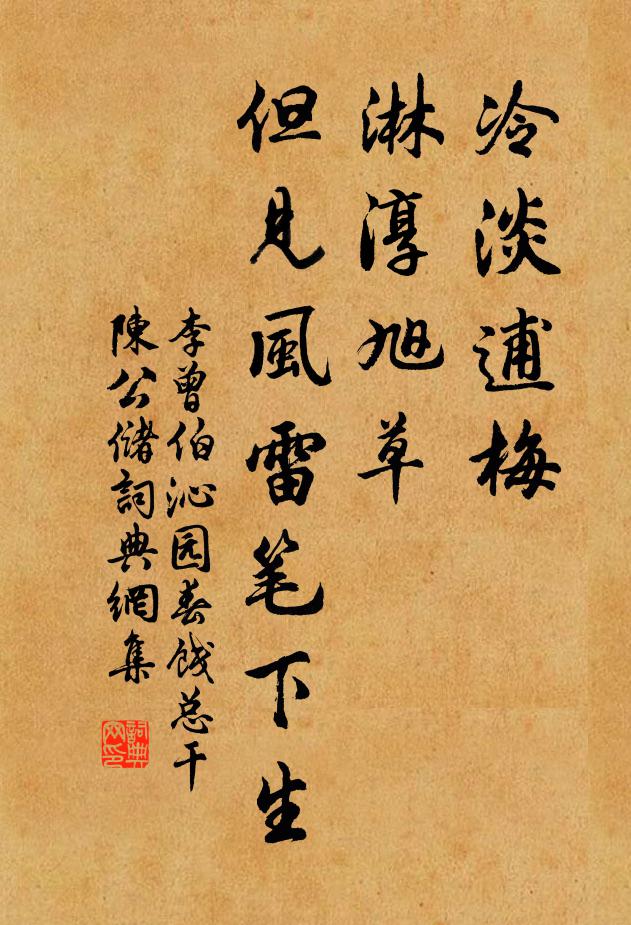 冷淡逋梅
淋淳旭草
但見風雷笔下生
李曾伯沁园春餞总干
陳公儲詞典網集
詞典
网印